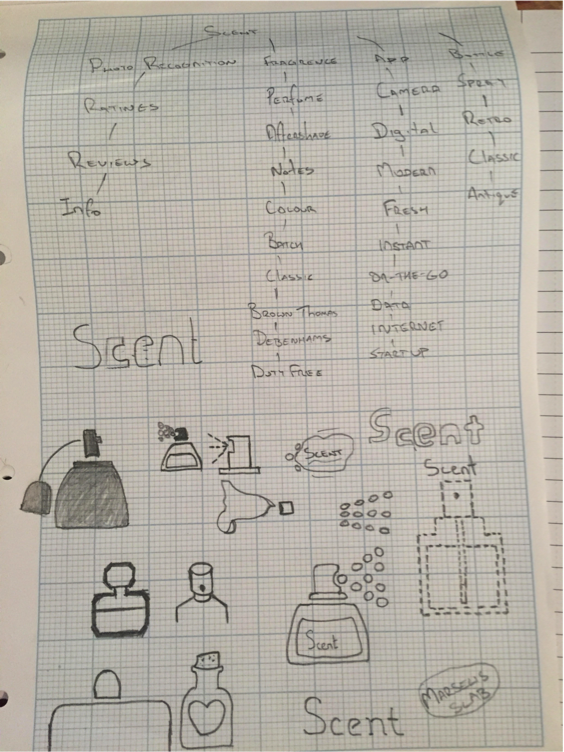 Scent
Photo Recognition
Ratings
Reviews
Info
Fragrence
Perfume
Aftershave
Notes
Colour
Classic
Brown Thomas
Debenhams
Duty Free
App
Camera
Digital
Modern
Fresh
Instant
On-the-go
Data
Internet
Startup
Bottle
Spray
Retro
Classic
Antique
Scent
Scent
Scent
Scent
Scent
Scent